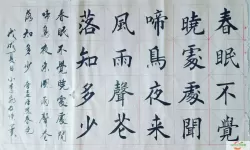 春眠不覺
曉處處聞
啼鳥夜來
風雨聲花
落知多少
春眠不覺曉處處聞
啼鳥夜來風雨聲花
落知多少
夏日